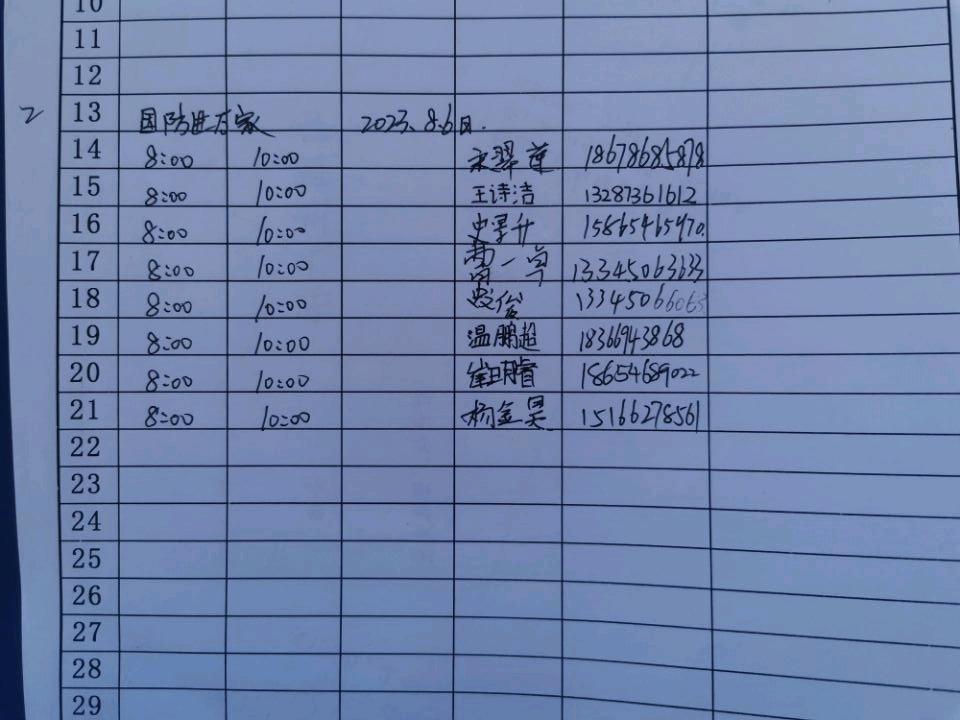 10
11
12
2 13 国防进万家 2023.8.6日.
14 8:00 10:00 18678685878
15 8:00 10:00 王诗洁 13287361612
16 8:00 10:00 15865465970.
17 8:00 10:00 一 13345063633
18 8:00 10:00 俊 13345066063
19 8:00 10:00 温鹏超 18366943868
20 8:00 10:00 崔明睿 18654689022
21 8:00 10:00 杨金昊 15166278561
22
23
24
25
26
27
28
29